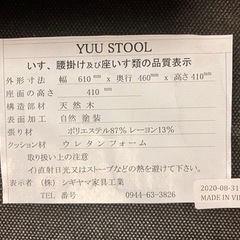 YUU STOOL
いす、腰掛け及び座いす類の品質表示
外形寸法 幅 610mm x 奥行 460mm x 高さ410mm
座面の高さ 410mm
構造部材 天然木
表面加工 自然 塗装
張り材 ポリエステル87% レーヨン13%
クッション材 ウレタンフォーム
取り扱い上の注意
イ)直射日光又はストーブなどの熱を避けて下さい。
表示者: (株) シギヤマ家具工業
TEL 番号 0944-63-3826
2020-08-31
MADE IN VI